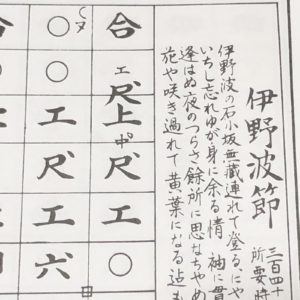 伊野波節
三百四十
所要時
伊野波の石小坂無蔵連れて登る、にや
いちし忘れゆが身に余る情 袖に貫
逢はぬ夜のつらさ餘所に思なちやめ
花や咲き過れて黄葉になる迄も
合工尺上中尺工○
○○工尺工六